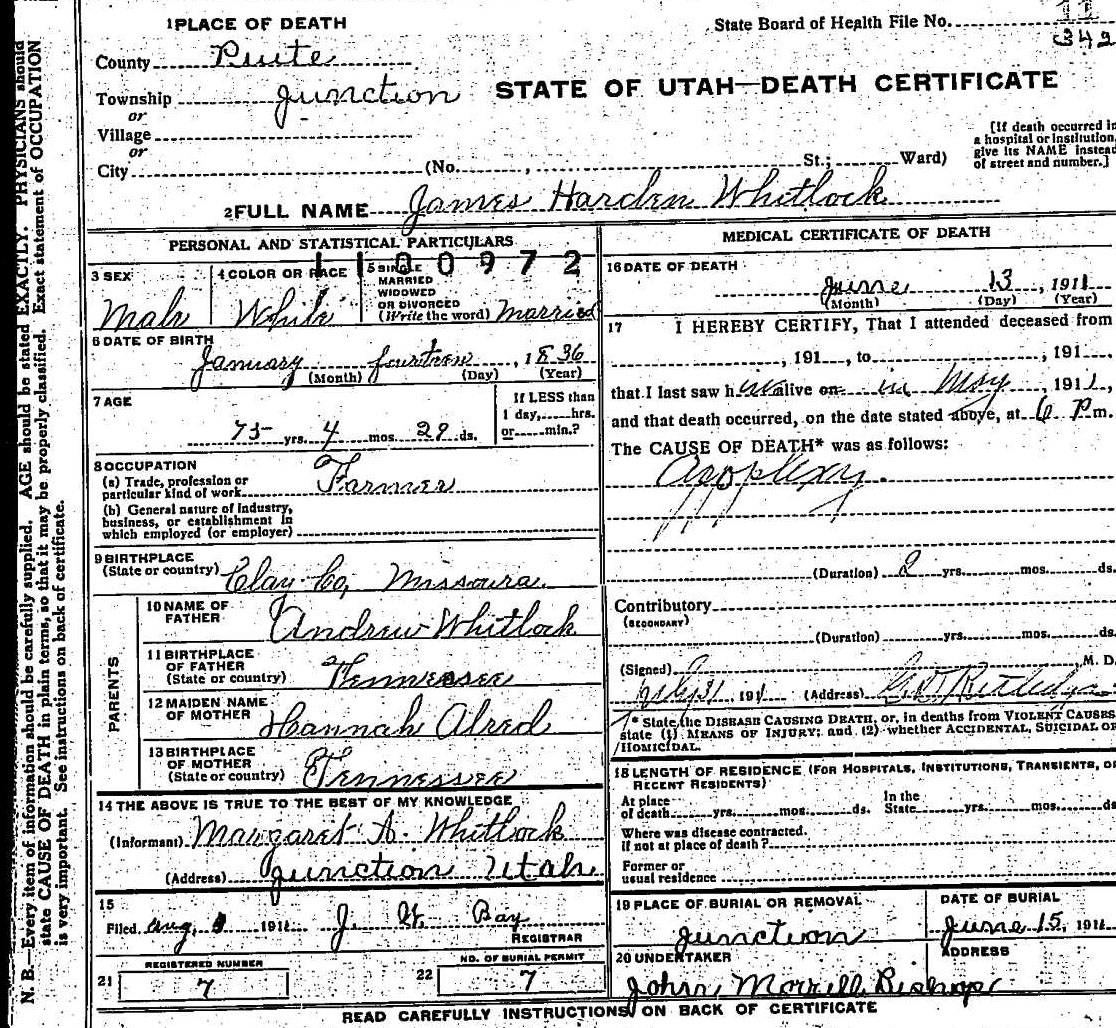 1 PLACE OF DEATH
State Board of Health File No. 11
342
County Piute
STATE OF UTAH—DEATH CERTIFICATE
Township Junction
or
Village
or
City (No. , St.; Ward)
[If death occurred in
a hospital or institution,
give its NAME instead
of street and number.]
2 FULL NAME James Harden Whitlock
PERSONAL AND STATISTICAL PARTICULARS
1100972
3 SEX
Male
4 COLOR OR RACE
White
5 SINGLE
MARRIED
WIDOWED
OR DIVORCED
(Write the word) Married
6 DATE OF BIRTH
January fourteen, 1836
(Month) (Day) (Year)
7 AGE
75 yrs. 4 mos. 29 ds.
If LESS than
1 day, hrs.
or min.?
8 OCCUPATION
(a) Trade, profession or
particular kind of work Farmer
(b) General nature of industry,
business, or establishment in
which employed (or employer)
9 BIRTHPLACE
(State or country) Clay Co, Missoura
PARENTS
10 NAME OF
FATHER Andrew Whitlock
11 BIRTHPLACE
OF FATHER
(State or country) Tennessee
12 MAIDEN NAME
OF MOTHER Hannah Alred
13 BIRTHPLACE
OF MOTHER
(State or country) Tennessee
14 THE ABOVE IS TRUE TO THE BEST OF MY KNOWLEDGE
(Informant) Margaret A. Whitlock
(Address) Junction Utah
15
Filed Aug, 1911 J. W. Bay
REGISTRAR
21 REGISTERED NUMBER
7
22 NO. OF BURIAL PERMIT
7
MEDICAL CERTIFICATE OF DEATH
16 DATE OF DEATH
June 13, 1911
(Month) (Day) (Year)
17 I HEREBY CERTIFY, That I attended deceased from
, 191 , to , 191
that I last saw him alive on in May, 1911,
and that death occurred, on the date stated above, at 6 P m.
The CAUSE OF DEATH* was as follows:
Apoplexy.
(Duration) 2 yrs. mos. ds.
Contributory
(SECONDARY)
(Duration) yrs. mos. ds.
(Signed) M. D.
July 31 1911 (Address)
* State the DISEASE CAUSING DEATH, or, in deaths from VIOLENT CAUSES,
state (1) MEANS OF INJURY; and (2) whether ACCIDENTAL, SUICIDAL OR
HOMICIDAL.
18 LENGTH OF RESIDENCE (FOR HOSPITALS, INSTITUTIONS, TRANSIENTS, OR
RECENT RESIDENTS)
At place
of death yrs. mos. ds.
In the
State yrs. mos. ds
Where was disease contracted,
if not at place of death?
Former or
usual residence
19 PLACE OF BURIAL OR REMOVAL
Junction
DATE OF BURIAL
June 15, 1911
20 UNDERTAKER
John Morrill Bishop
ADDRESS
READ CAREFULLY INSTRUCTIONS ON BACK OF CERTIFICATE
N. B.—Every item of information should be carefully supplied. AGE should be stated EXACTLY. PHYSICIANS should
state CAUSE OF DEATH in plain terms, so that it may be properly classified. Exact statement of OCCUPATION
is very important. See instructions on back of certificate.